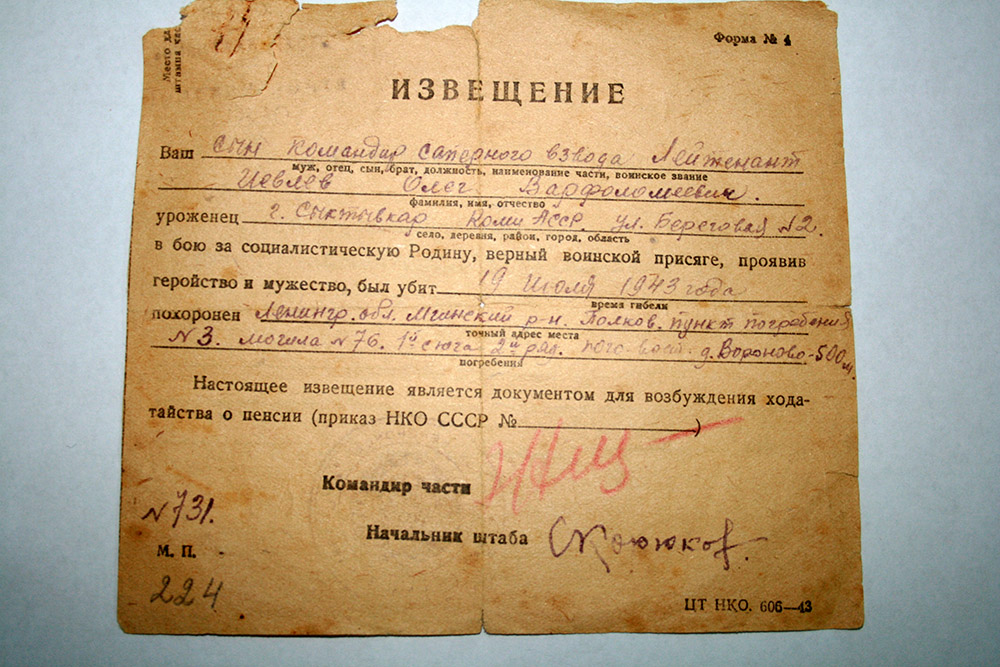 Место
штампа час
Форма № 4
ИЗВЕЩЕНИЕ
Ваш сын командир саперного взвода Лейтенант
муж, отец, сын, брат, должность, наименование части, воинское звание
Иевлев Олег Варфоломеевич.
фамилия, имя, отчество
уроженец г. Сыктывкар Коми АССР. ул. Береговая №2.
село, деревня, район, город, область
в бою за социалистическую Родину, верный воинской присяге, проявив
геройство и мужество, был убит 19 Июля 1943 года
время гибели
похоронен Ленингр. обл. Мгинский р-н. Полков. пункт погребения
точный адрес места
№3. могила №76. 1й 2й ряд. юго-вост. д. Вороново-500м.
погребения
Настоящее извещение является документом для возбуждения хода-
тайства о пенсии (приказ НКО СССР № )
Командир части
Начальник штаба
№731.
М. П.
224
ЦТ НКО. 606—43